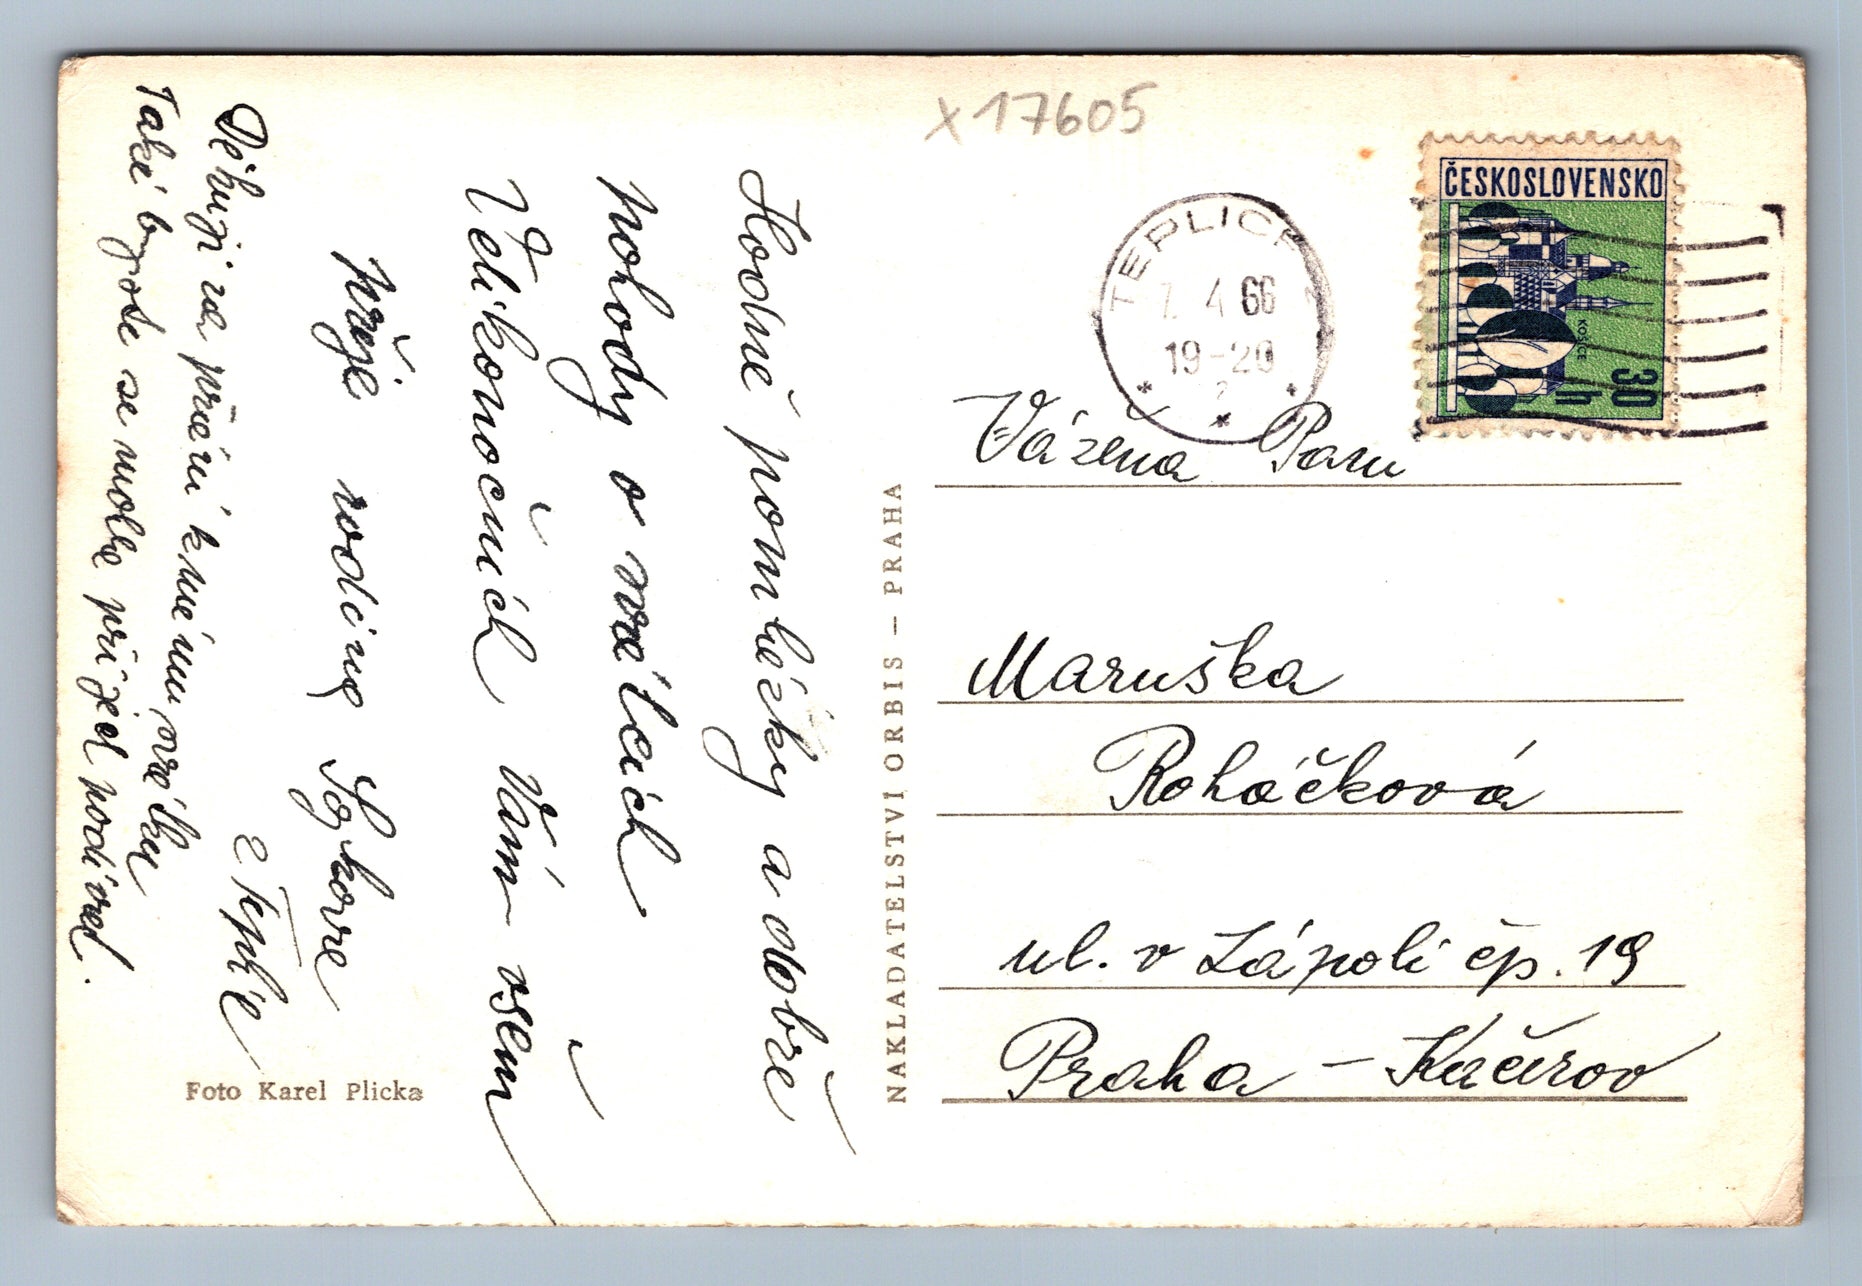 x17605
ČESKOSLOVENSKO
KOŠICE
30
h
TEPLICE
7. 4 66
19-20
Hodně pomlázky a dobré
pohody o svátcích
Velikonočních Vám všem
přeje rodina
z Teplic
Děkuji za přání k mému svátku
Také byste se mohla přijet podívat.
Foto Karel Plicka
NAKLADATELSTVÍ ORBIS – PRAHA
Vážená Paní
Maruška
Roháčková
ul. v Zápolí čp. 19
Praha – Kačerov